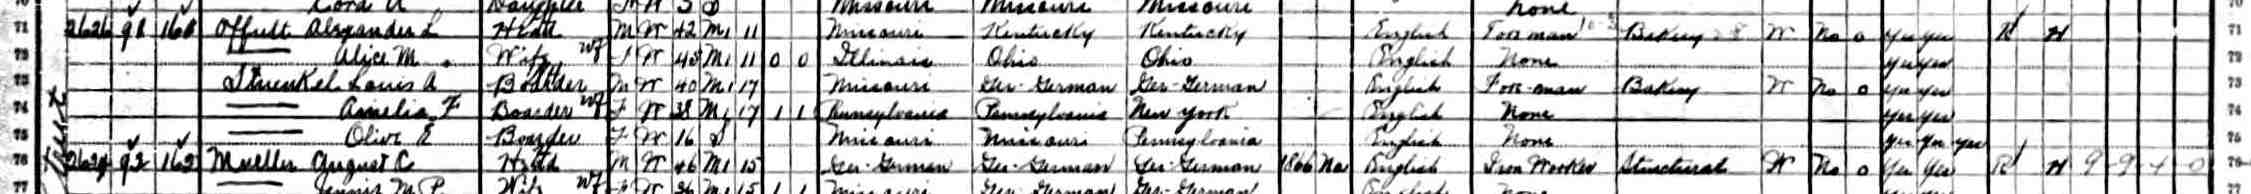 Cora A Daughter 5 S Missouri Missouri Missouri None
71 2626 91 161 Offutt Alexander L Head M W 42 M1 11 Missouri Kentucky Kentucky English Foreman Bakery W No 0 Yes Yes R H 71
72 Alice M. Wife wf F W 45 M1 11 0 0 Illinois Ohio Ohio English None Yes Yes
73 Louis A Boarder M W 40 M1 17 Missouri Ger-German Ger-German English Foreman Bakery W No 0 Yes Yes 73
74 Amelia F Boarder wf F W 38 M1 17 1 1 Pennsylvania Pennsylvania New York English None Yes Yes 74
75 Olive E Boarder F W 16 S Missouri Missouri Pennsylvania English None Yes Yes Yes 75
76 92 162 Mueller August C Head M W 46 M1 15 Ger-German Ger-German Ger-German 1866 Na English Iron Worker Structural W No 0 Yes Yes R H 9-9-4-0 76
77 M Wife wf F W 1 1 Missouri Ger-German Ger-German English None 77